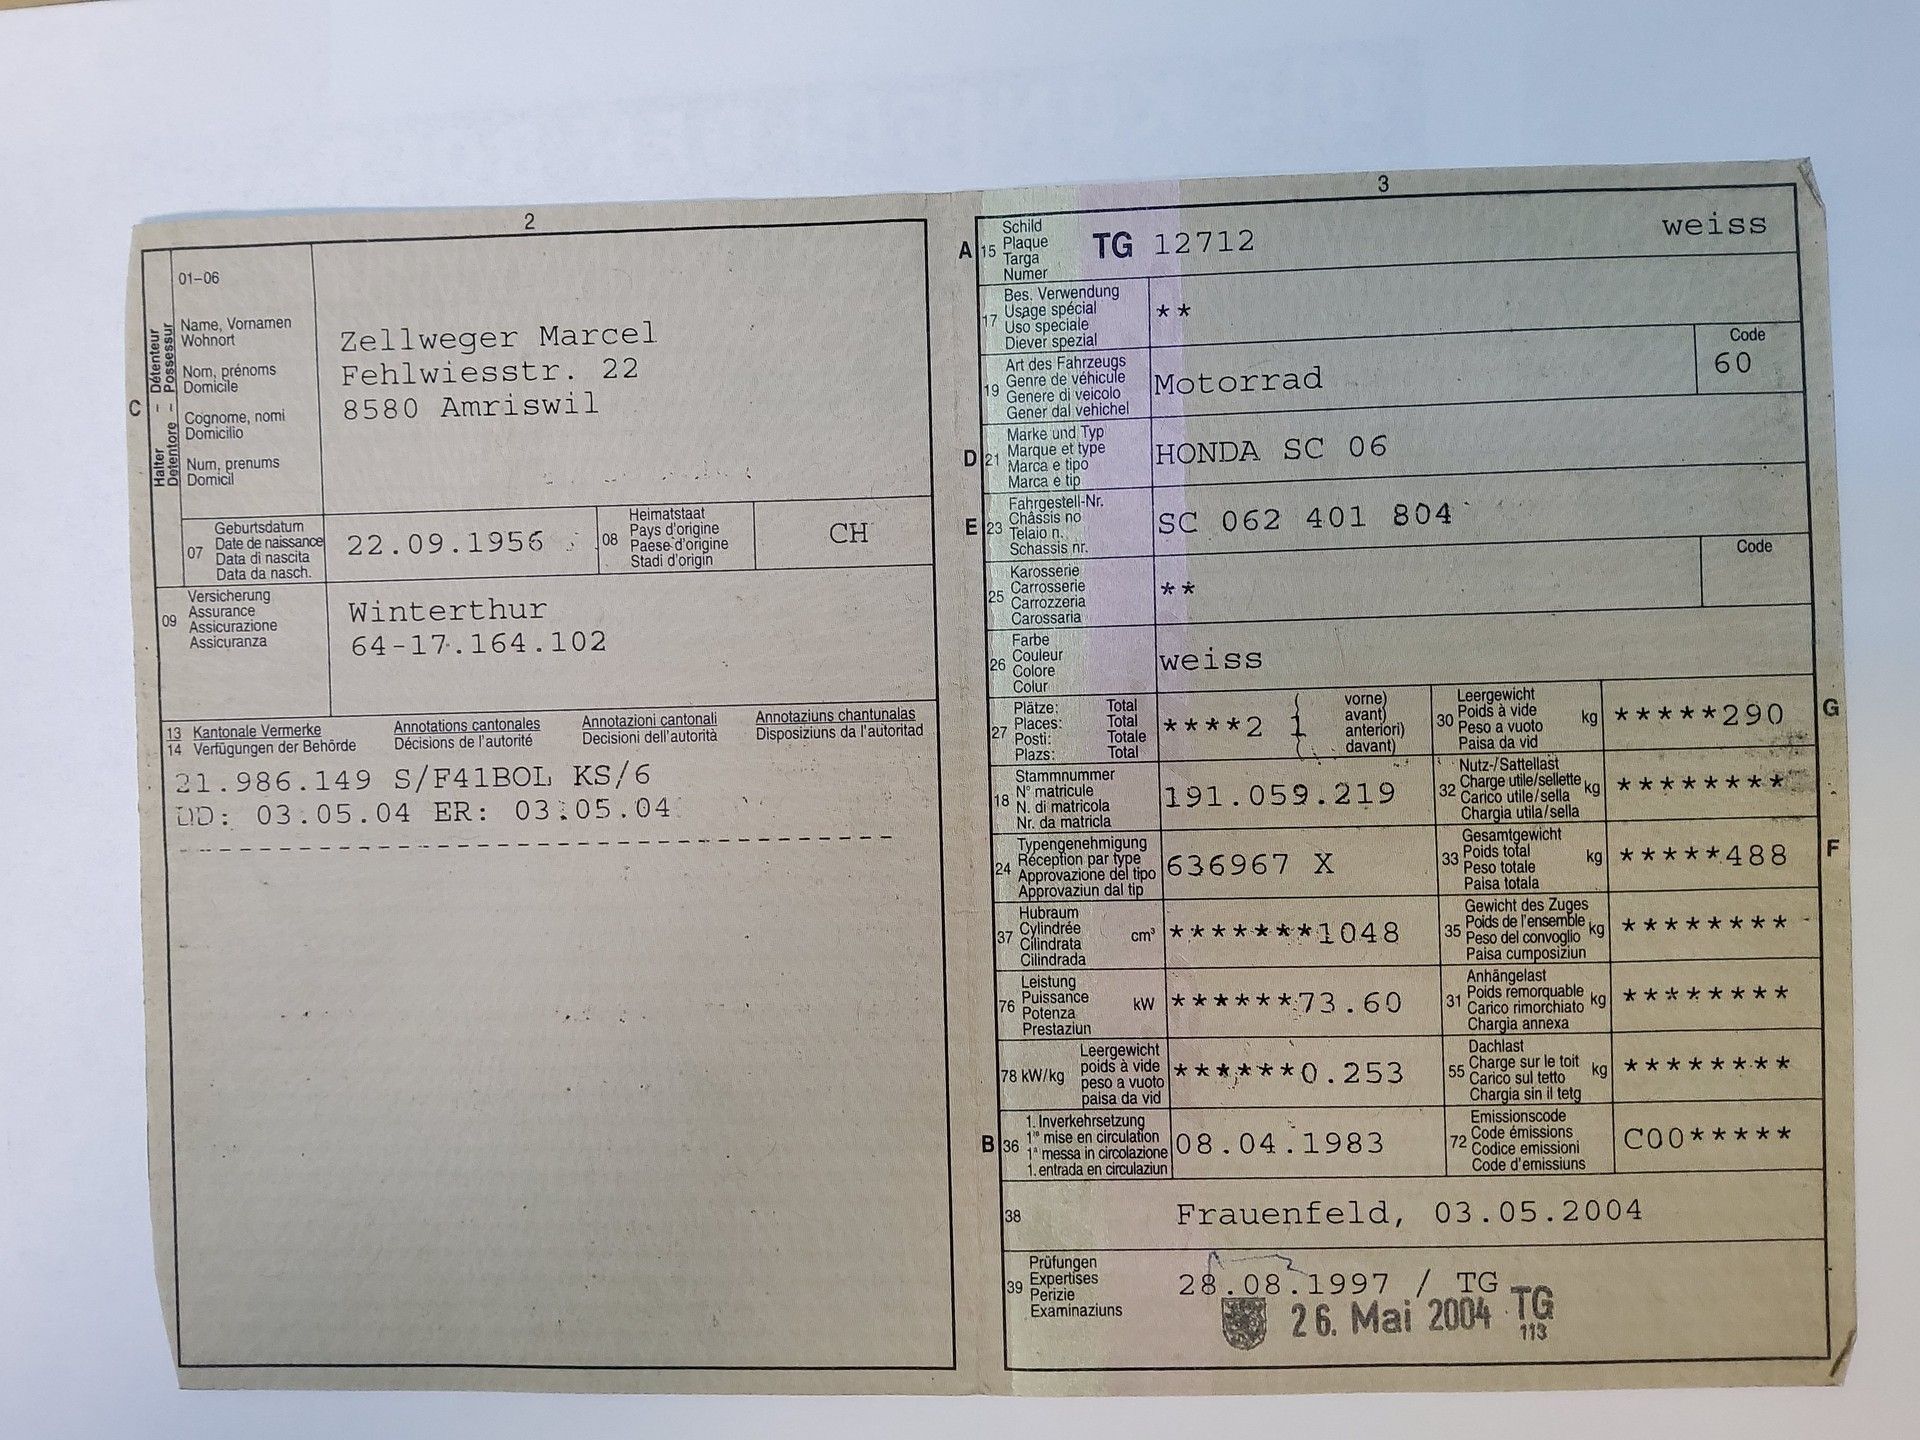 2
01-06
Halter - Détenteur
Detentore - Possessur
C
Name, Vornamen
Wohnort
Nom, prénoms
Domicile
Cognome, nomi
Domicilio
Num, prenums
Domicil
Zellweger Marcel
Fehlwiesstr. 22
8580 Amriswil
07
Geburtsdatum
Date de naissance
Data di nascita
Data da nasch.
22.09.1956
08
Heimatstaat
Pays d'origine
Paese d'origine
Stadi d'origin
CH
09
Versicherung
Assurance
Assicurazione
Assicuranza
Winterthur
64-17.164.102
13 Kantonale Vermerke Annotations cantonales Annotazioni cantonali Annotaziuns chantunalas
14 Verfügungen der Behörde Décisions de l'autorité Decisioni dell'autorità Disposiziuns da l'autoritad
21.986.149 S/F41BOL KS/6
DD: 03.05.04 ER: 03.05.04
3
A 15
Schild
Plaque
Targa
Numer
TG 12712 weiss
17
Bes. Verwendung
Usage spécial
Uso speciale
Diever spezial
**
19
Art des Fahrzeugs
Genre de véhicule
Genere di veicolo
Gener dal vehichel
Motorrad
Code
60
D 21
Marke und Typ
Marque et type
Marca e tipo
Marca e tip
HONDA SC 06
E 23
Fahrgestell-Nr.
Châssis no
Telaio n.
Schassis nr.
SC 062 401 804
25
Karosserie
Carrosserie
Carrozzeria
Carossaria
**
Code
26
Farbe
Couleur
Colore
Colur
weiss
27
Plätze: Total
Places: Total
Posti: Totale
Plazs: Total
****2 1
vorne)
avant)
anteriori)
davant)
30
Leergewicht
Poids à vide
Peso a vuoto
Paisa da vid
kg
*****290
G
18
Stammnummer
N° matricule
N. di matricola
Nr. da matricla
191.059.219
32
Nutz-/Sattellast
Charge utile/sellette
Carico utile/sella
Chargia utila/sella
kg
********
24
Typengenehmigung
Réception par type
Approvazione del tipo
Approvaziun dal tip
636967 X
33
Gesamtgewicht
Poids total
Peso totale
Paisa totala
kg
*****488
F
37
Hubraum
Cylindrée
Cilindrata
Cilindrada
cm³
*******1048
35
Gewicht des Zuges
Poids de l'ensemble
Peso del convoglio
Paisa cumposiziun
kg
********
76
Leistung
Puissance
Potenza
Prestaziun
kW
******73.60
31
Anhängelast
Poids remorquable
Carico rimorchiato
Chargia annexa
kg
********
78 kW/kg
Leergewicht
poids à vide
peso a vuoto
paisa da vid
******0.253
55
Dachlast
Charge sur le toit
Carico sul tetto
Chargia sin il tetg
kg
********
B 36
1. Inverkehrsetzung
1re mise en circulation
1a messa in circolazione
1. entrada en circulaziun
08.04.1983
72
Emissionscode
Code émissions
Codice emissioni
Code d'emissiuns
C00*****
38
Frauenfeld, 03.05.2004
39
Prüfungen
Expertises
Perizie
Examinaziuns
28.08.1997 / TG
26. Mai 2004 TG
113